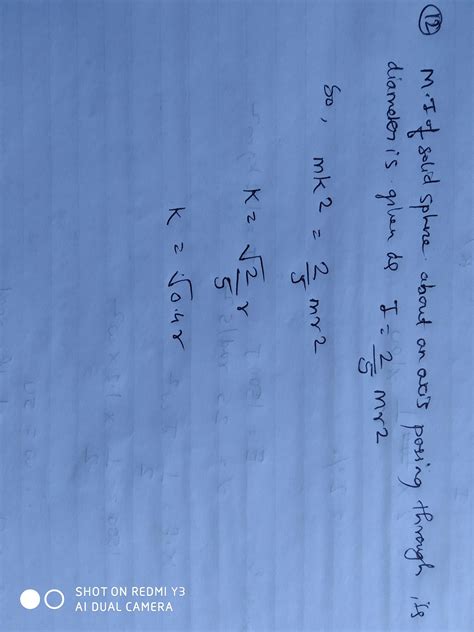 (12) M.I of solid sphere about an axis passing through its
diameter is given is I = 2/5 Mr2
So, mk2 = 2/5 mr2
K = √2/5 r
K = √0.4 r
SHOT ON REDMI Y3
AI DUAL CAMERA